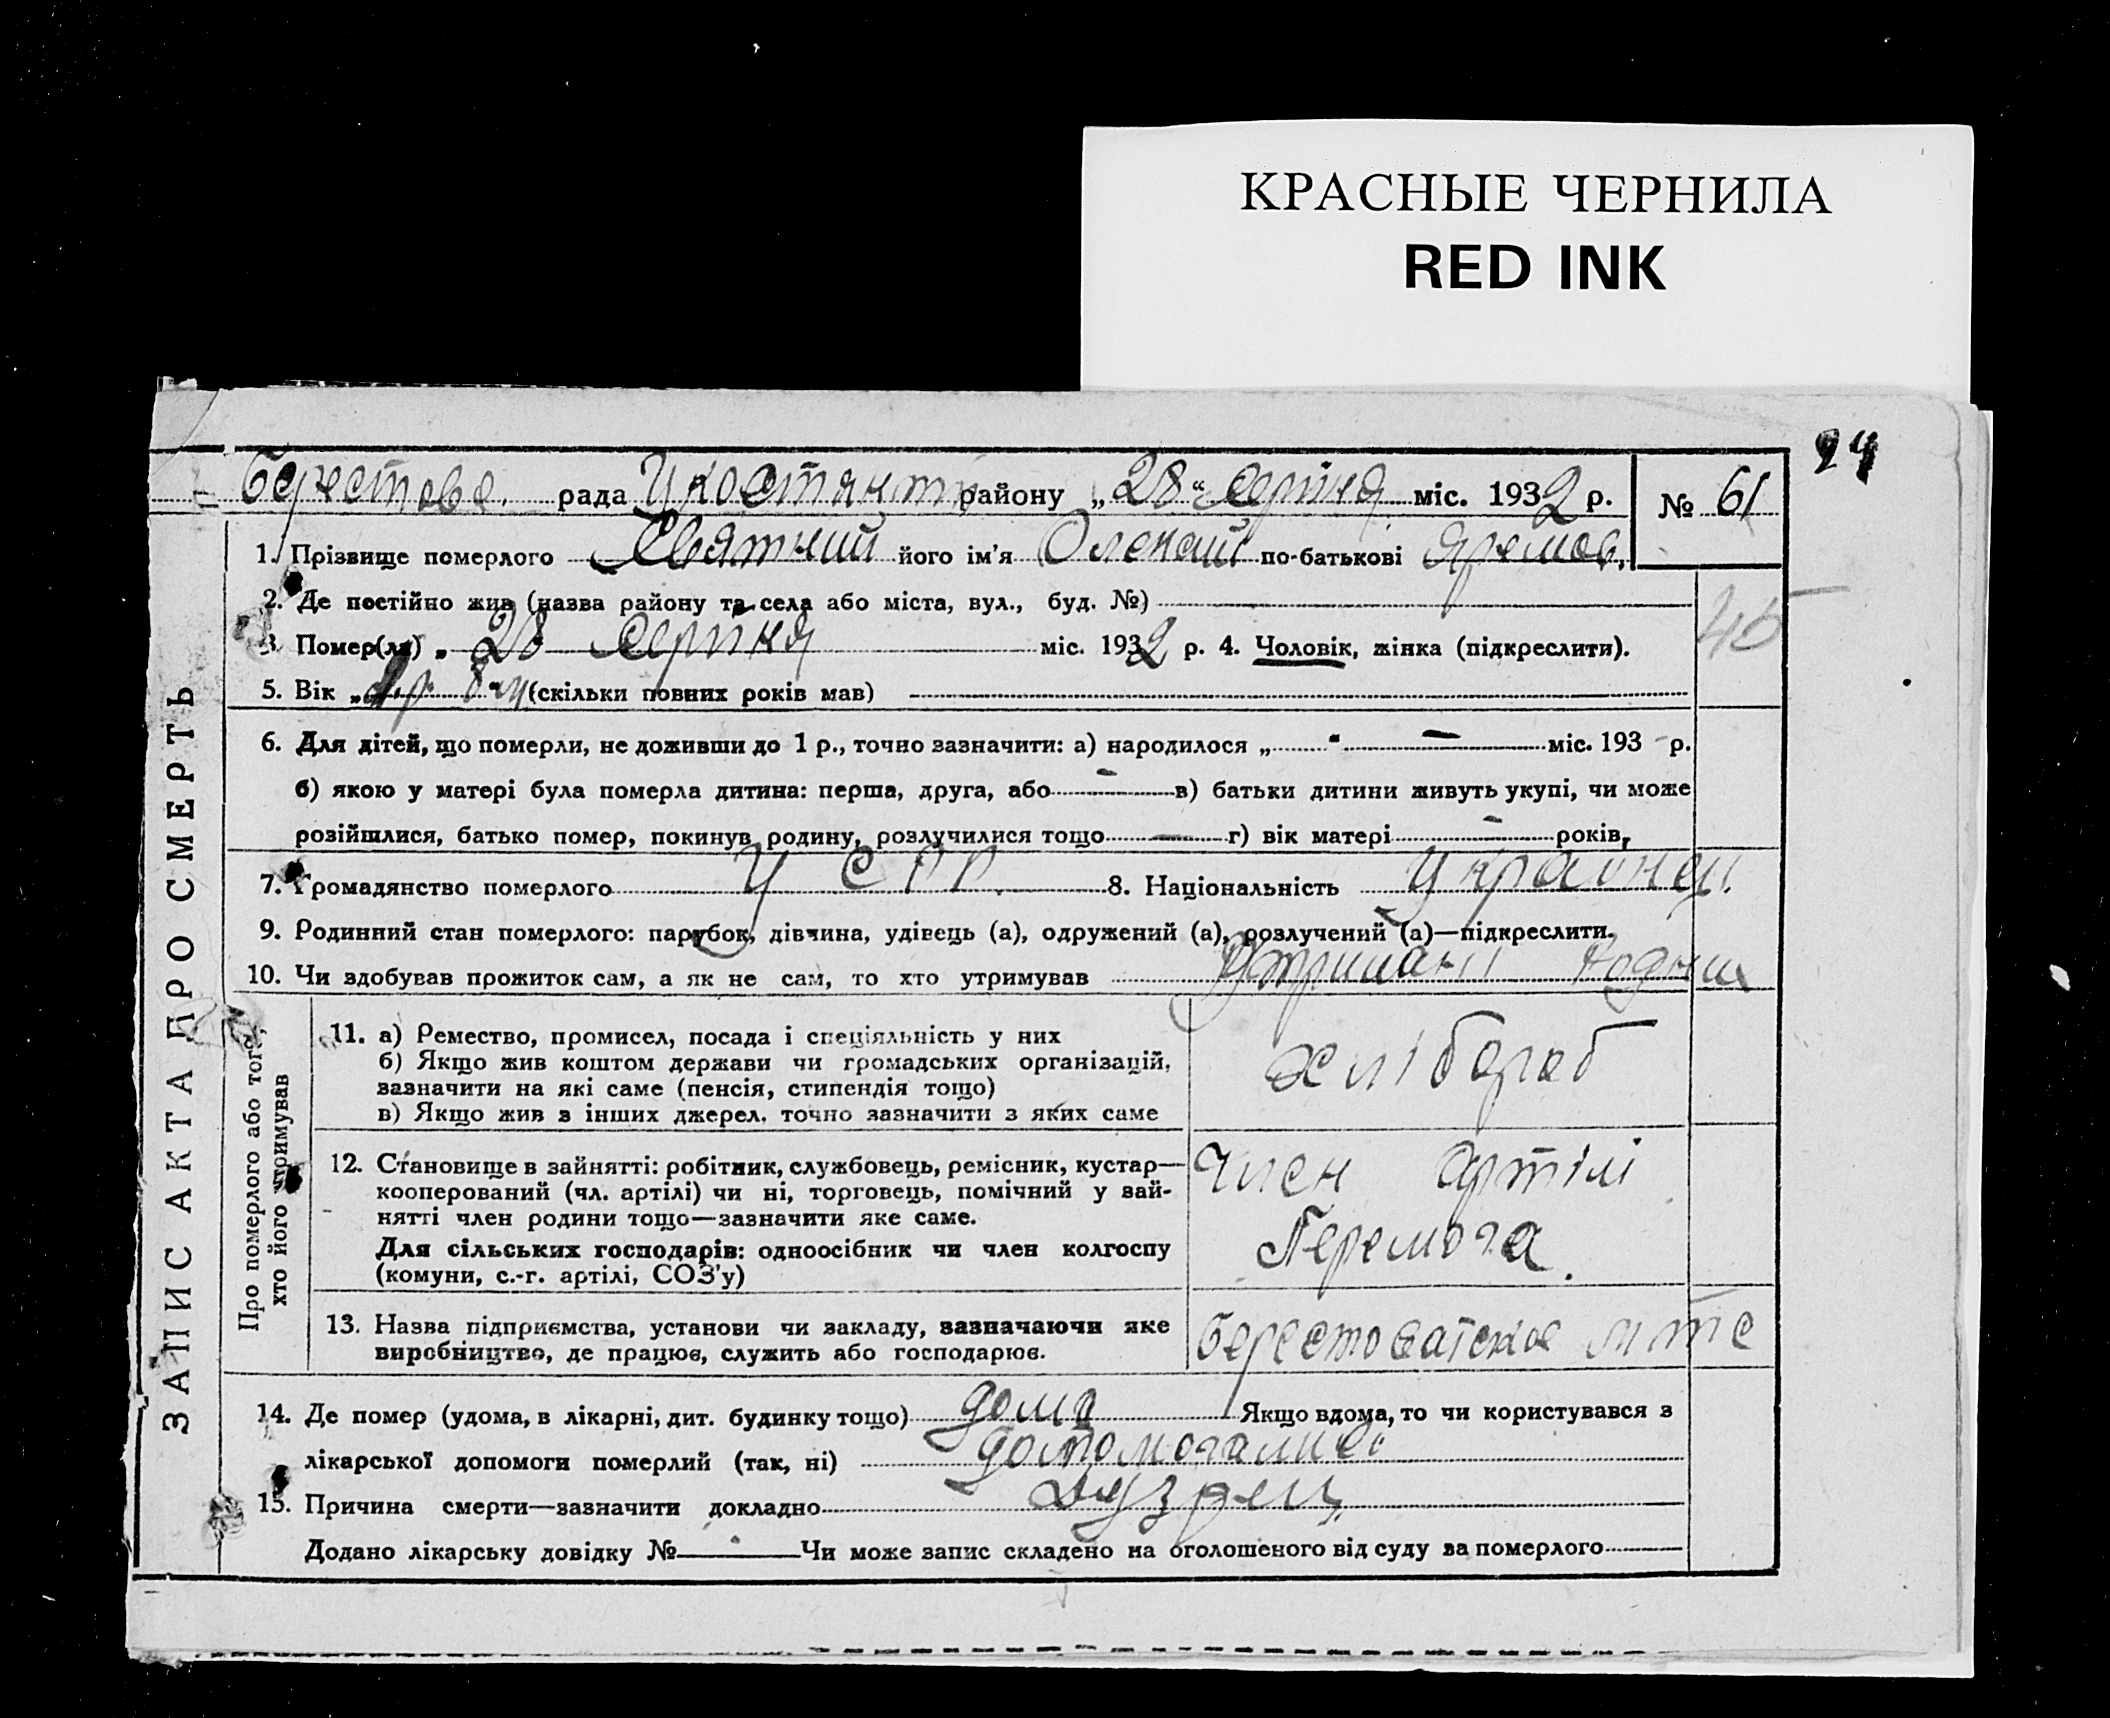 КРАСНЫЕ ЧЕРНИЛА
RED INK
24
Берестове. рада району „28“ серпня міс. 1932 р. № 61
1. Прізвище померлого Святний його ім'я Олекаій по-батькові Яремов,
2. Де постійно жив (назва району та села або міста, вул., буд. №)
3. Помер(ла) „ 28 серпня міс. 1932 р. 4. Чоловік, жінка (підкреслити).
45
5. Вік „ р. 8 м (скільки повних років мав)
6. Для дітей, що померли, не доживши до 1 р., точно зазначити: а) народилося „ “ — міс. 193 - р.
б) якою у матері була померла дитина: перша, друга, або — в) батьки дитини живуть укупі, чи може
розійшлися, батько помер, покинув родину, розлучилися тощо — г) вік матері — років,
7. Громадянство померлого УСРР. 8. Національність Украинец.
9. Родинний стан померлого: парубок, дівчина, удівець (а), одружений (а), розлучений (а)—підкреслити.
10. Чи здобував прожиток сам, а як не сам, то хто утримував Утриманні
ЗАПИС АКТА ПРО СМЕРТЬ
Про померлого або того, хто його утримував
11. а) Ремество, промисел, посада і спеціяльність у них
б) Якщо жив коштом держави чи громадських організацій,
зазначити на які саме (пенсія, стипендія тощо)
в) Якщо жив з інших джерел, точно зазначити з яких саме
хлібороб
12. Становище в зайнятті: робітник, службовець, ремісник, кустар—
кооперований (чл. артілі) чи ні, торговець, помічний у зай-
нятті член родини тощо—зазначити яке саме.
Для сільських господарів: одноосібник чи член колгоспу
(комуни, с.-г. артілі, СОЗ'у)
член артілі
Перемога.
13. Назва підприємства, установи чи закладу, зазначаючи яке
виробництво, де працює, служить або господарює.
14. Де помер (удома, в лікарні, дит. будинку тощо) дома Якщо вдома, то чи користувався з
лікарської допомоги померлий (так, ні)
15. Причина смерти—зазначити докладно
Додано лікарську довідку № — Чи може запис складено на оголошеного від суду за померлого